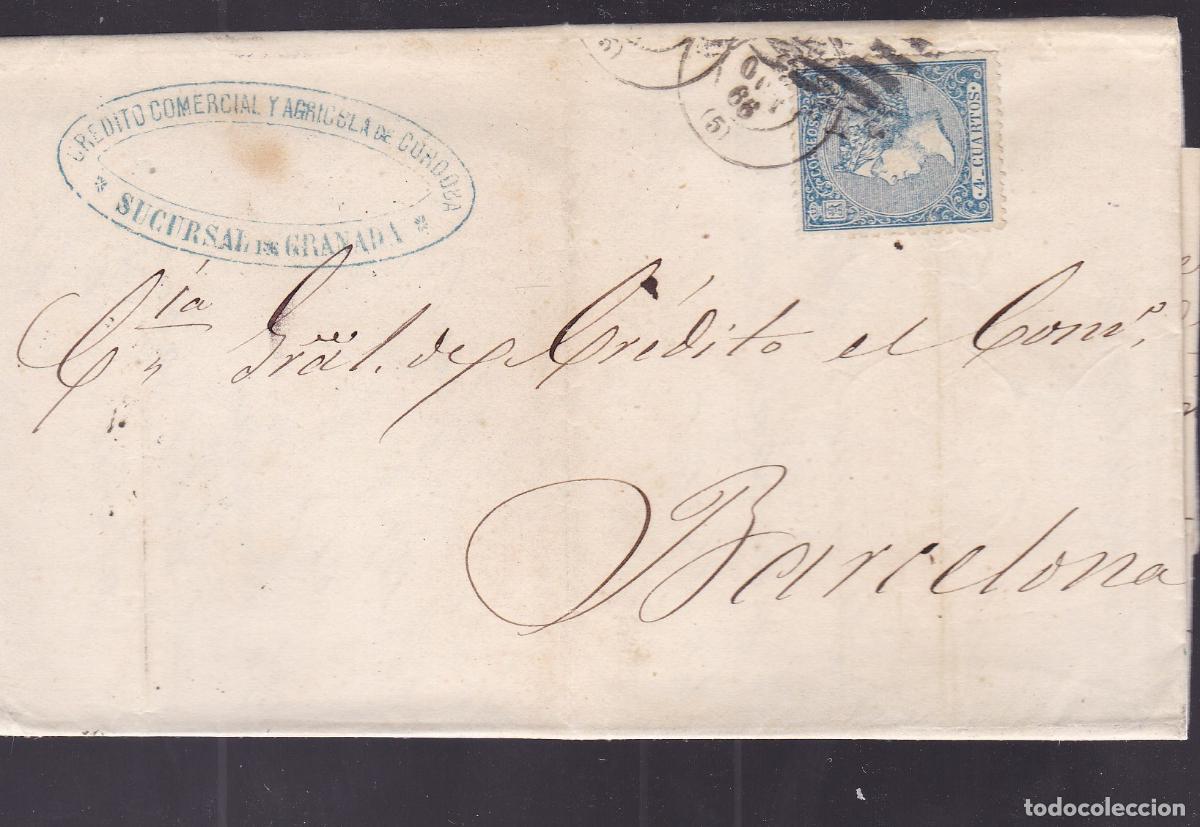 CREDITO COMERCIAL Y AGRICOLA DE CORDOBA
SUCURSAL DE GRANADA
OCT
66
(5)
(5)
CORREOS
4. CUARTOS.
Cía Gral. de Crédito el Como.
Barcelona
todocoleccion